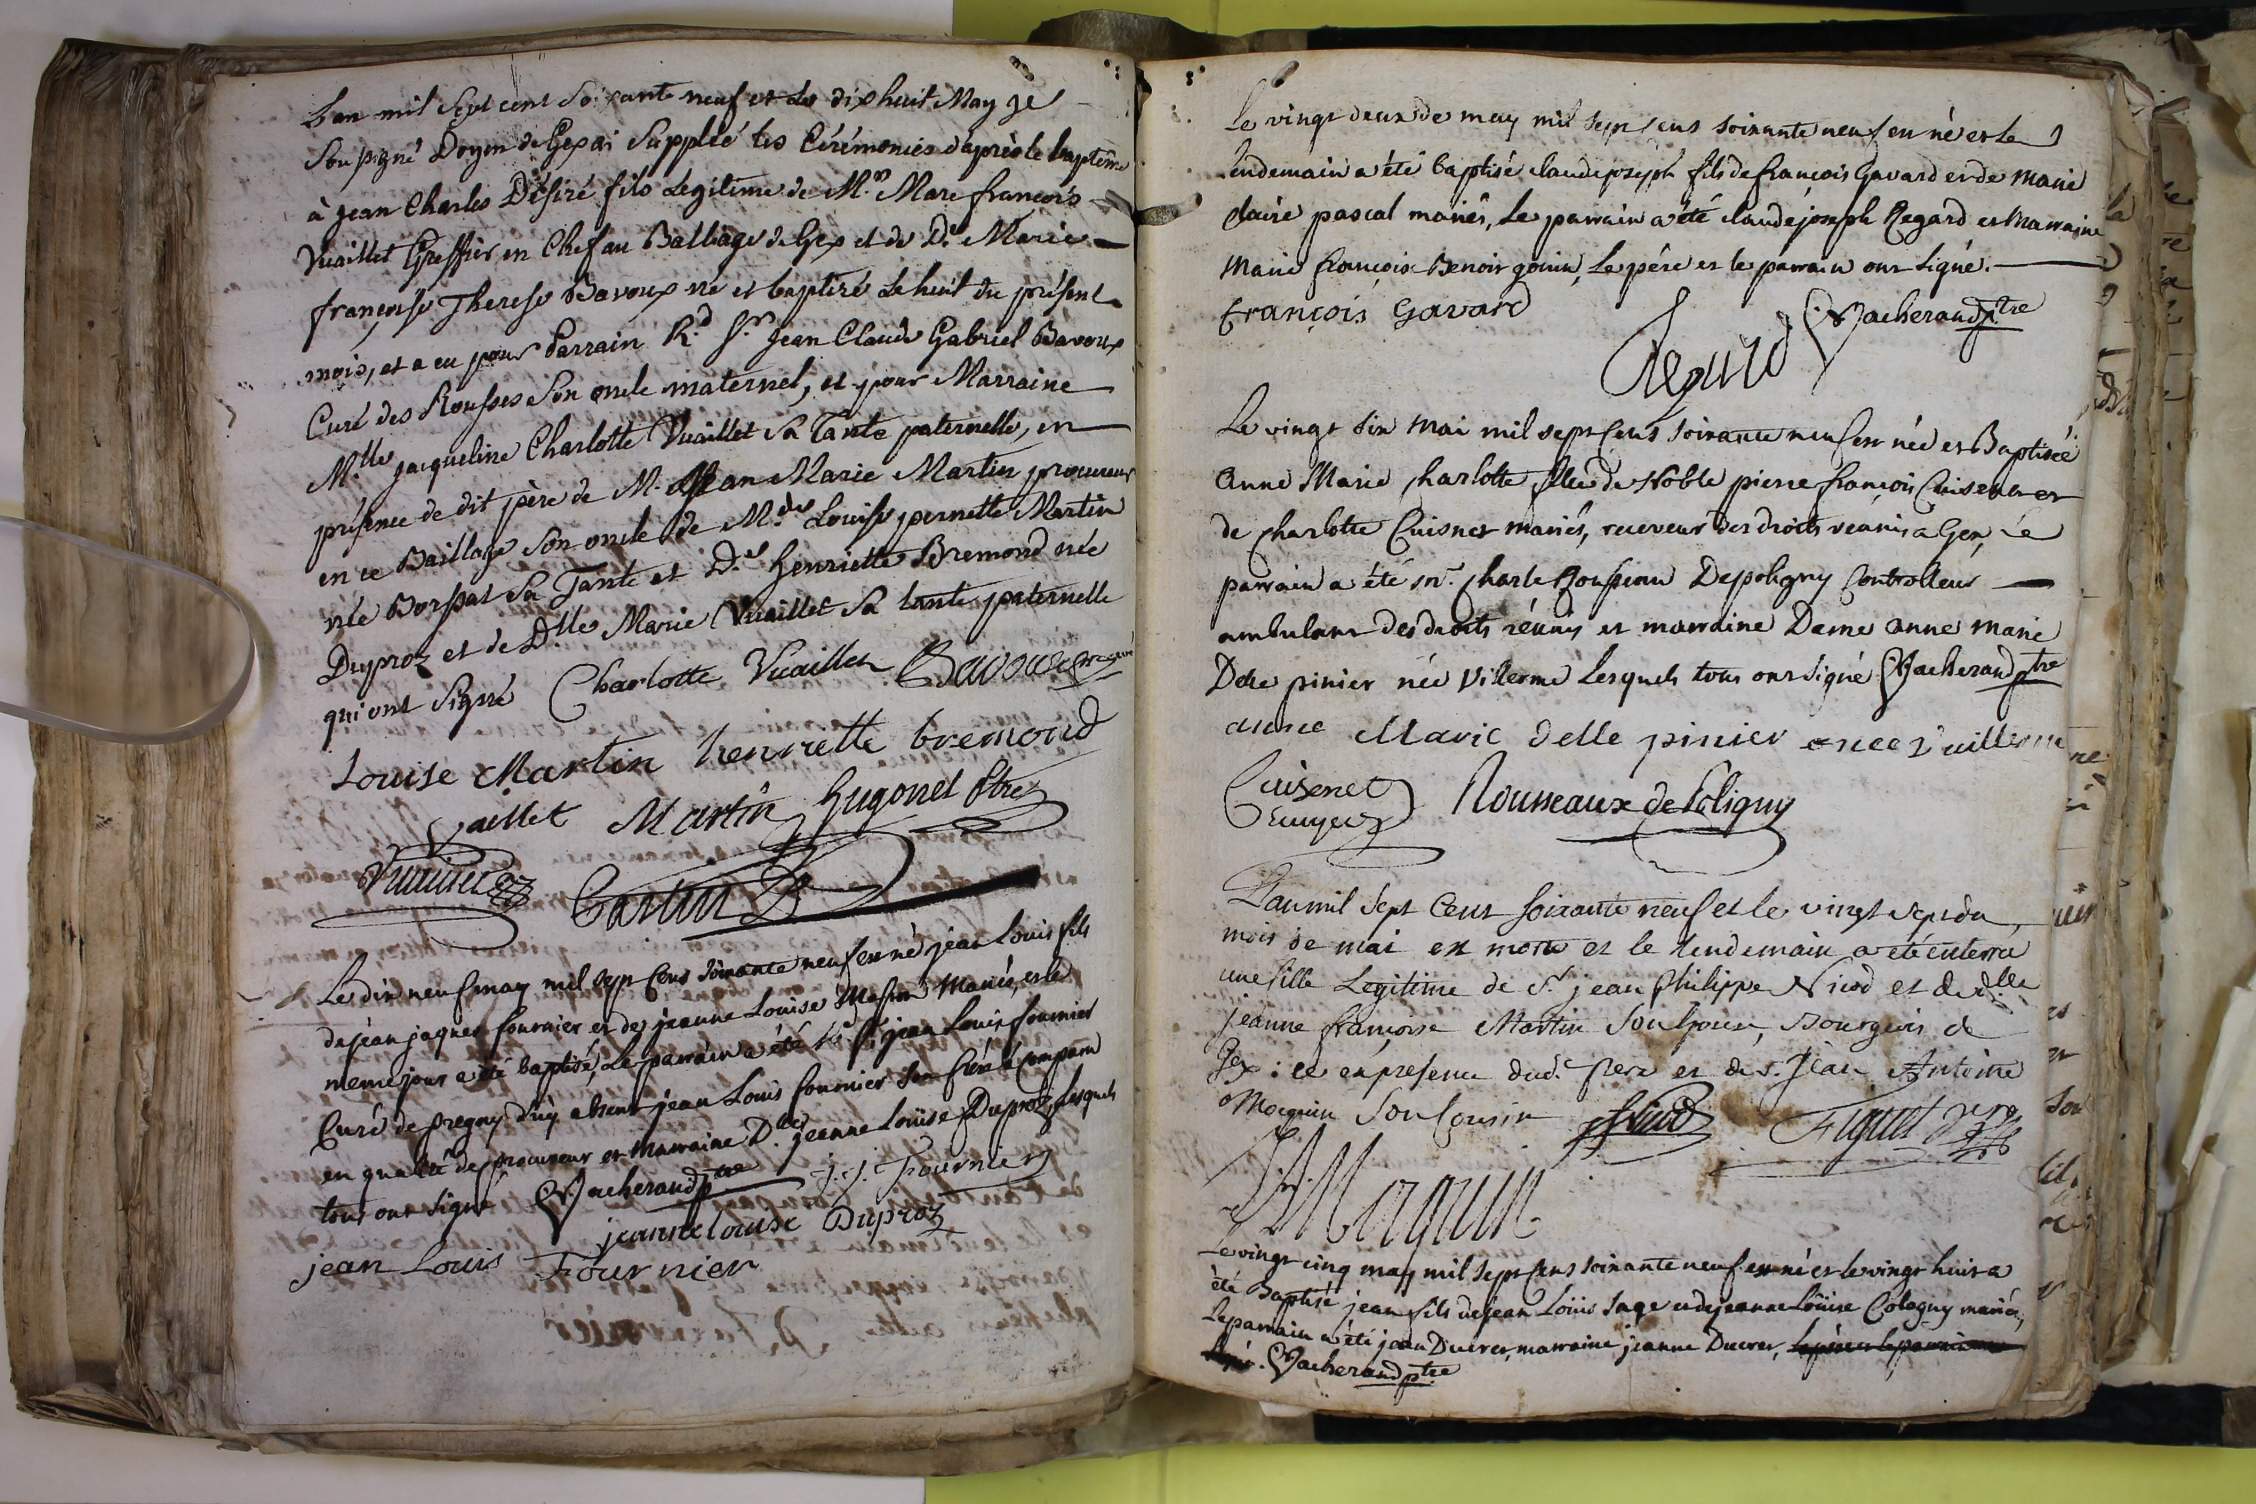 L'an mil sept cent soixante neuf et le dixhuit May je
soussigné Doyen de Gex ai supplée les Cérémonies d'après le baptême
à Jean Charles Désiré fils Légitime de M.r Marc françois
Vuaillet Greffier en Chef au Balliage de Gex et de D.e Marie
françoise Therese Bavoux né et baptisé le huit du présent
mois, et a eu pour Parrain R.d S.r Jean Claude Gabriel Bavoux
Curé des Rousses son oncle maternel, et pour Marraine
M.lle Jacqueline Charlotte Vuaillet sa Tante paternelle, en
présence de dit père de M. Jean Marie Martin procureur
en ce Baillage son oncle de M.de Louise pernette Martin
née Borssat sa Tante et D.e Henriette Bremond née
Duproz et de D.lle Marie Vuaillet sa tante paternelle
qui ont signé Charlotte Vuaillet Bavoux
Louise Martin henriette bremond
Vaillet Martin hugonet Ptre
Le dix neuf may mil sept cens soixante neuf est né jean Louis fils
de jean jaques fournier et de jeanne Louise Masson Mariés, et le
meme jour a été baptisé, Le parrain a été R.d S.r jean Louis fournier
Curé de pregny d'icy absent jean Louis fournier son frère a Comparu
en qualité de procureur et Marraine D.lle jeanne Louise Duproz, lesquels
tous ont signé Vacherand ptre j. j. Fournier
jeanne louise Duproz
jean Louis Fournier
Le vingt deux de may mil sept cens soixante neuf en né et le
lendemain a été baptisé claude joseph fils de françois Gavard et de Marie
claire pascal mariés, Le parrain a été claude joseph Regard et Marraine
Marie françoise Benoit gonin, Le père et le parrain ont signé.
François Gavard Vacherand ptre
Regard
Le vingt six Mai mil sept cens soixante neuf est née et Baptisée
Anne Marie charlotte fille de Noble pierre françois Cuisenet et
de charlotte Cuisnet mariés, receveur des droits reunis a Gex, Le
parrain a été m.r charle Rousseau Depoligny Controlleur
ambulant des droits réunis et marraine Dame anne marie
Delle pinier née Vilerme Lesquels tous ont signé Vacherand ptre
anne Marie delle pinier nee Vuillerme
Cuisenet Rousseaux de Poligny
Ecuyer
L'an mil sept cent soixante neuf et le vingt sept du
mois de mai est morte et le lendemain a été enterré
une fille Legitime de S.r jean Philippe Nicod et de d.lle
jeanne françoise Martin son epouse, Bourgeois de
Gex : ce en presence dud. Pere et de S. Jean Antoine
Moegnin son Cousin Nicod Figuet
Le vingt cinq may mil sept cens soixante neuf est né et le vingt huit a
été Baptisé jean fils de jean Louis Sage et de jeanne Loüise Cologny mariés,
Le parrain a été jean Ducret, marraine jeanne Ducret, le père et le parrain
Vacherand ptre